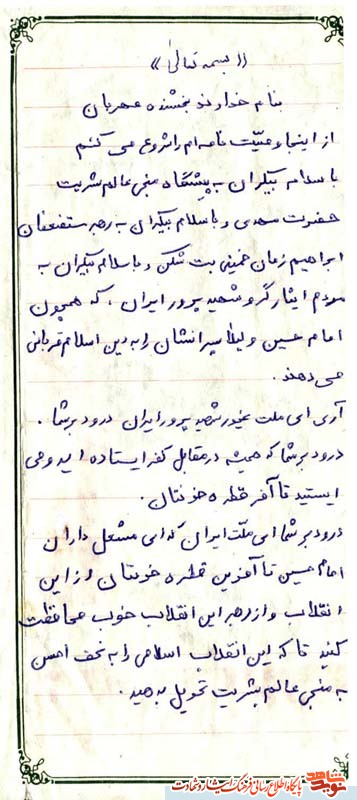 «بسمه تعالی»
بنام خداوند بخشنده مهربان
از اینجا وصیّت نامه ام را شروع می کنم
با سلام بیکران به پیشگاه منجی عالم بشریت
حضرت مهدی و با سلام بیکران به رهبر مستضعفان
ابراهیم زمان خمینی بت شکن و با سلام بیکران به
مردم ایثارگر و شهید پرور ایران، که همچون
امام حسین و لیلا پسرانشان را به دین اسلام قربانی
می دهند.
آری ای ملت غیور شهید پرور ایران درود بر شما.
درود بر شما که همیشه در مقابل کفر ایستاده اید و می
ایستید تا آخر قطره خونتان.
درود بر شما ای ملّت ایران که ای مشعل داران
امام حسین تا آخرین قطره خونتان از این
انقلاب و از رهبر این انقلاب خوب محافظت
کنید تا که این انقلاب اسلامی را به نحو احسن
به منجی عالم بشریت تحویل بدهید.
نوید شاهد
پایگاه اطلاع رسانی فرهنگ ایثار و شهادت